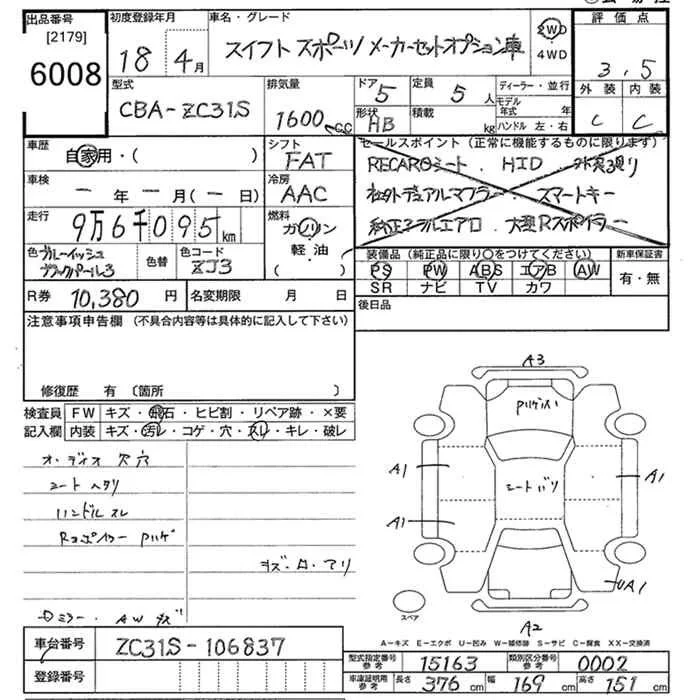 出品番号
[2179]
6008
初度登録年月
18年 4月
車名・グレード
スイフト スポーツ メーカーセットオプション車
2WD
・
4WD
評価点
3.5
外装 内装
C C
型式
CBA-ZC31S
排気量
1600cc
ドア
5
形状
HB
定員
5人
積載
kg
ディーラー・並行
モデル年式 年
ハンドル 左・右
車歴
自家用・( )
シフト
FAT
セールスポイント (正常に機能するものに限ります)
RECAROシート. HID.
社外デュアルマフラー. スマートキー
純正フルエアロ. 大型Rスポイラー
車検
ー年ー月(ー日)
冷房
AAC
走行
9万6千095km
燃料
ガソリン
・
軽・油
( )
色 ブルーイッシュブラックパール3
色替
色コード
ZJ3
装備品 (純正品に限り○をつけてください)
PS PW ABS エアB AW
SR ナビ TV カワ
新車保証書
有・無
R券 10,380円
名変期限 月 日
後日品
注意事項申告欄 (不具合内容等は具体的に記入して下さい)
修復歴 有 〔箇所 〕
検査員 FW キズ・飛石・ヒビ割・リペア跡・×要
記入欄 内装 キズ・汚レ・コゲ・穴・スレ・キレ・破レ
オーディオ欠穴
シートヘタリ
ハンドルスレ
Rスポイラー Pハゲ
キズ・凹・アリ
ミラー・AWキズ
A3
Pハゲ
A1
A1
A1
シートバリ
UA1
スペア
A2
A-キズ E-エクボ U-凹み W-補修跡 S-サビ C-腐食 XX-交換済
車台番号 ZC31S-106837
登録番号
型式指定番号参考 15163 類別区分番号参考 0002
車庫証明用参考 長さ 376cm 幅 169cm 高さ 151cm